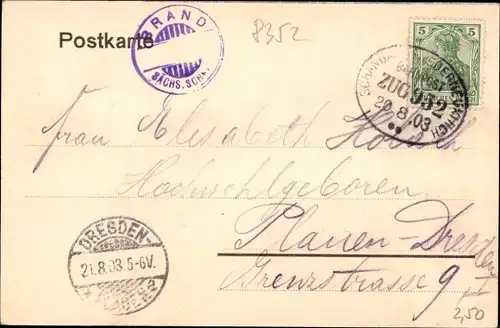 Postkarte
BRAND
SÄCHS. SCHW.
8352
5
BAHNPOST
ZUG 932
20 8 03
Frau Elisabeth
Hochwohlgeboren
Plauen-Dresden
Grenzstrasse 9 II
DRESDEN-
21.8.03.5-6V.
2,50